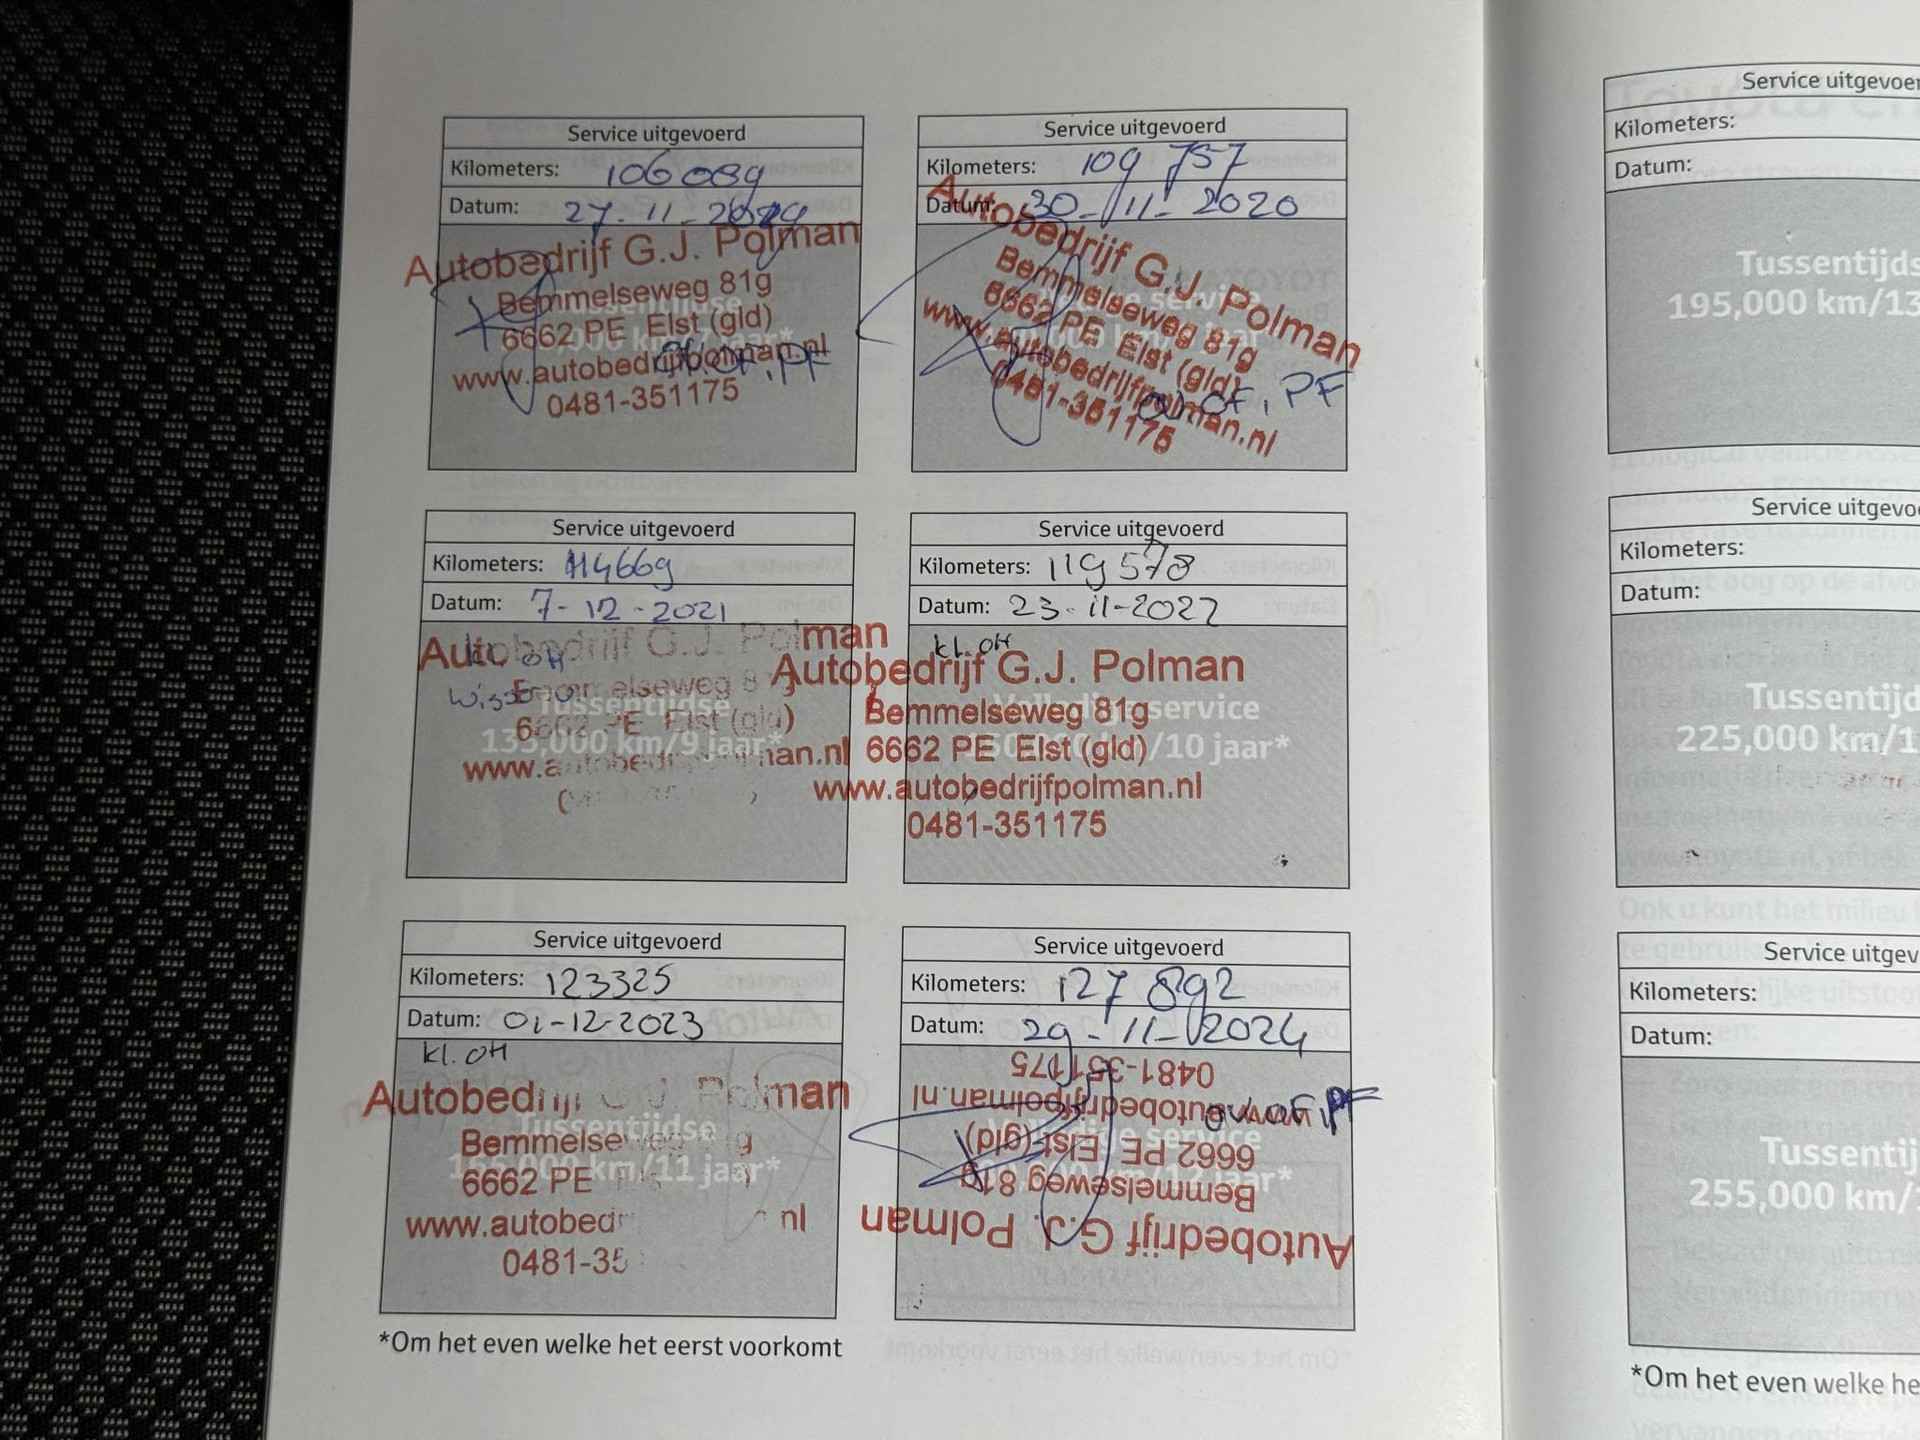 Service uitgevoerd
Kilometers: 106089
Datum: 27-11-
Autobedrijf G.J. Polman
Bemmelseweg 81g
Tussentijdse
6662 PE Elst (gld)
000 km/7 jaar*
www.autobedrijfpolman.nl
OF, PF
0481-351175
Service uitgevoerd
Kilometers: 109 757
Datum: 30-11-2020
Autobedrijf G.J. Polman
Bemmelseweg 81g
service
6662 PE Elst (gld)
www.autobedrijfpolman.nl
OF, PF
0481-351175
Service uitgevoerd
Kilometers: 114669
Datum: 7-12-2021
Autobedrijf G.J. Polman
OH
Bemmelseweg 81g
Tussentijdse
6662 PE Elst (gld)
135,000 km/9 jaar*
www.autobedrijfpolman.nl
Service uitgevoerd
Kilometers: 119578
Datum: 23-11-2022
kl. OH
Autobedrijf G.J. Polman
Bemmelseweg 81g
Volledige service
6662 PE Elst (gld)
150,000 km/10 jaar*
www.autobedrijfpolman.nl
0481-351175
Service uitgevoerd
Kilometers: 123325
Datum: 01-12-2023
kl. OH
Autobedrijf G.J. Polman
Tussentijdse
Bemmelseweg 81g
165,000 km/11 jaar*
6662 PE
www.autobedr nl
0481-35
Service uitgevoerd
Kilometers: 127 892
Datum: 29-11-2024
0481-351175
www.autobedrijfpolman.nl
OF, PF
6662 PE Elst (gld)
Volledige service
Bemmelseweg 81g
km/12 jaar*
Autobedrijf G.J. Polman
*Om het even welke het eerst voorkomt
Service uitgevoer
Kilometers:
Datum:
Tussentijds
195,000 km/13
Service uitgevo
Kilometers:
Datum:
Tussentijd
225,000 km/1
Service uitgev
Kilometers:
Datum:
Tussentij
255,000 km/
*Om het even welke he